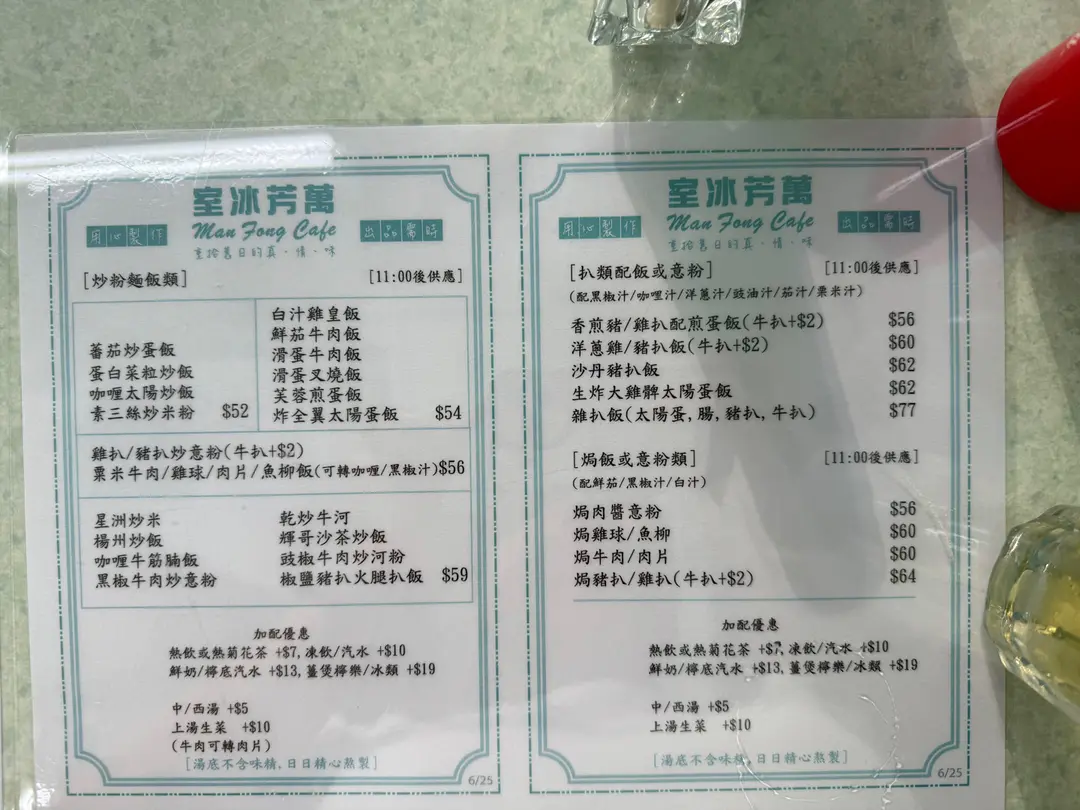 室冰芳萬
Man Fong Cafe
用心製作
出品需時
重拾舊日的真、情、味
[炒粉麵飯類]
[11:00後供應]
蕃茄炒蛋飯
蛋白菜粒炒飯
咖喱太陽炒飯
素三絲炒米粉 $52
白汁雞皇飯
鮮茄牛肉飯
滑蛋牛肉飯
滑蛋叉燒飯
芙蓉煎蛋飯
炸全翼太陽蛋飯 $54
雞扒/豬扒炒意粉(牛扒+$2)
粟米牛肉/雞球/肉片/魚柳飯(可轉咖喱/黑椒汁)$56
星洲炒米
楊州炒飯
咖喱牛筋腩飯
黑椒牛肉炒意粉
乾炒牛河
輝哥沙茶炒飯
豉椒牛肉炒河粉
椒鹽豬扒火腿扒飯 $59
加配優惠
熱飲或熱菊花茶 +$7, 凍飲/汽水 +$10
鮮奶/檸底汽水 +$13, 薑煲檸樂/冰類 +$19
中/西湯 +$5
上湯生菜 +$10
(牛肉可轉肉片)
[湯底不含味精, 日日精心熬製]
6/25
室冰芳萬
Man Fong Cafe
用心製作
出品需時
重拾舊日的真、情、味
[扒類配飯或意粉]
[11:00後供應]
(配黑椒汁/咖喱汁/洋蔥汁/豉油汁/茄汁/粟米汁)
香煎豬/雞扒配煎蛋飯(牛扒+$2) $56
洋蔥雞/豬扒飯(牛扒+$2) $60
沙丹豬扒飯 $62
生炸大雞髀太陽蛋飯 $62
雜扒飯(太陽蛋, 腸, 豬扒, 牛扒) $77
[焗飯或意粉類]
[11:00後供應]
(配鮮茄/黑椒汁/白汁)
焗肉醬意粉 $56
焗雞球/魚柳 $60
焗牛肉/肉片 $60
焗豬扒/雞扒(牛扒+$2) $64
加配優惠
熱飲或熱菊花茶 +$7, 凍飲/汽水 +$10
鮮奶/檸底汽水 +$13, 薑煲檸樂/冰類 +$19
中/西湯 +$5
上湯生菜 +$10
[湯底不含味精, 日日精心熬製]
6/25